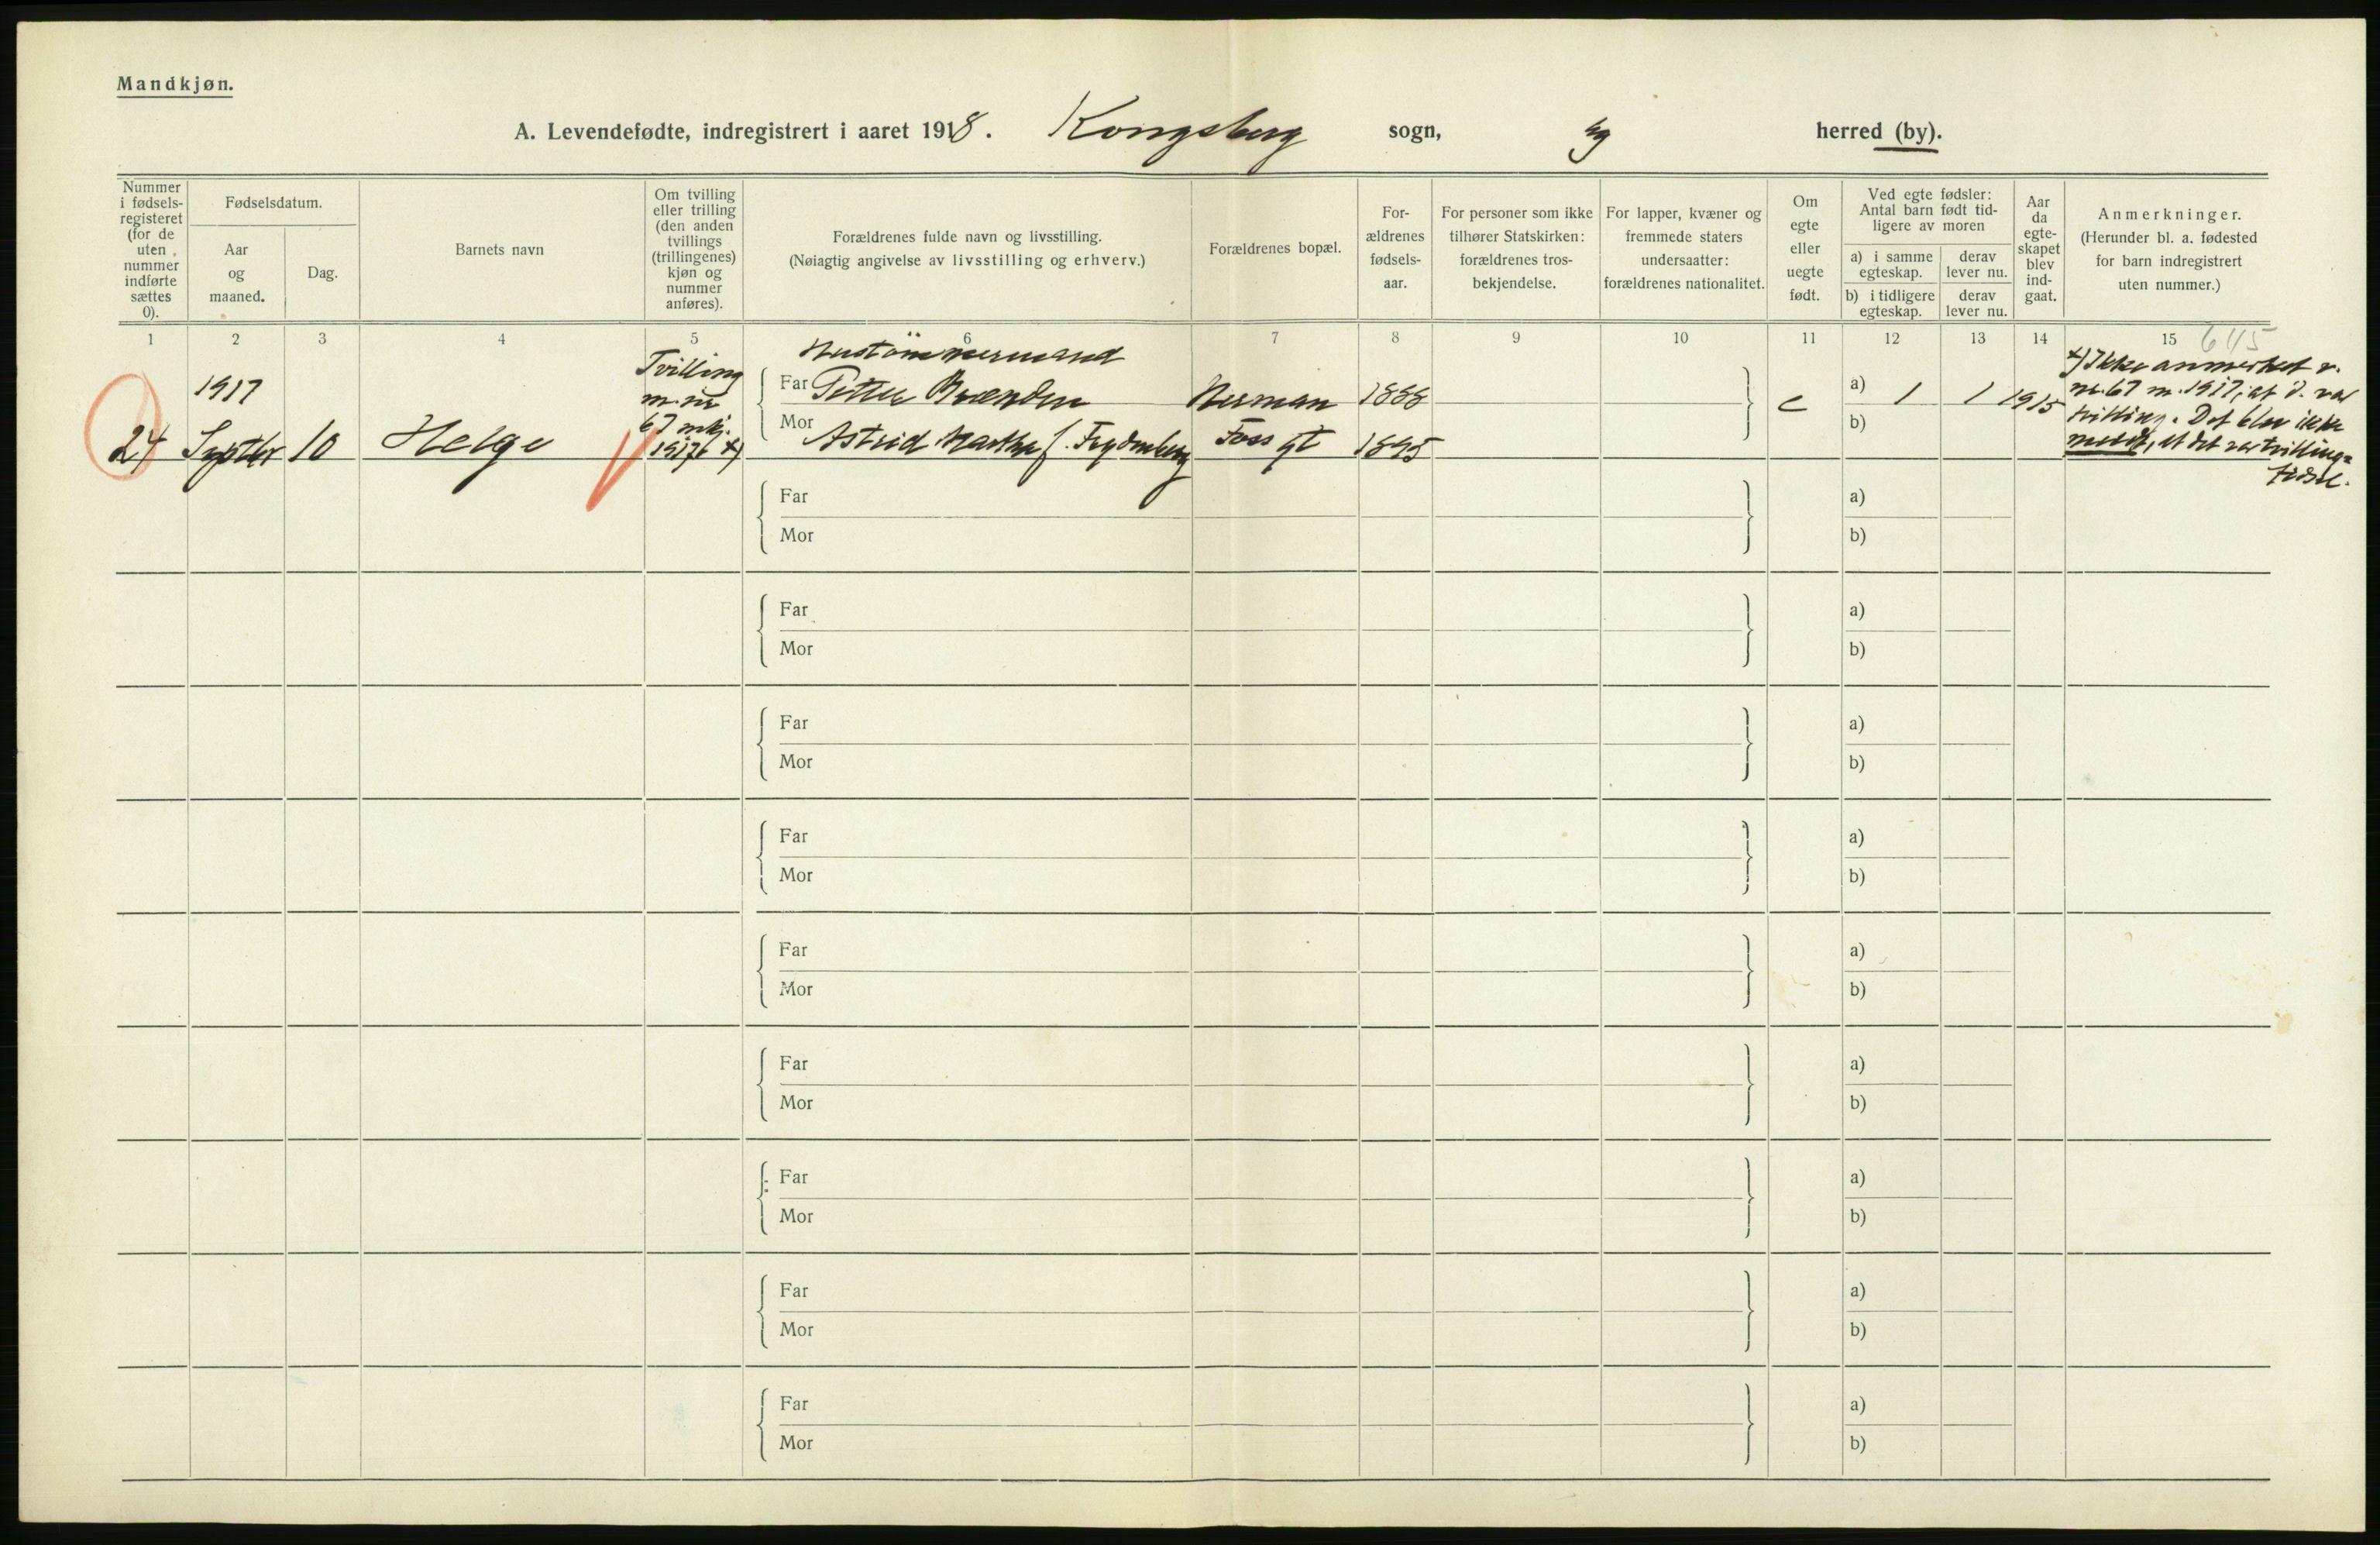 Mandkjøn.
A. Levendefødte, indregistrert i aaret 1918. Kongsberg sogn, herred (by).
Nummer i fødsels- registeret (for de uten nummer indførte sættes 0).
Fødselsdatum.
Aar og maaned.
Dag.
Barnets navn
Om tvilling eller trilling (den anden tvillings (trillingenes) kjøn og nummer anføres).
Forældrenes fulde navn og livsstilling.
(Nøiagtig angivelse av livsstilling og erhverv.)
Forældrenes bopæl.
For- ældrenes fødsels- aar.
For personer som ikke tilhører Statskirken: forældrenes tros- bekjendelse.
For lapper, kvæner og fremmede staters undersaatter: forældrenes nationalitet.
Om egte eller uegte født.
Ved egte fødsler: Antal barn født tid- ligere av moren
a) i samme egteskap.
derav lever nu.
b) i tidligere egteskap.
derav lever nu.
Aar da egte- skapet blev ind- gaat.
Anmerkninger.
(Herunder bl. a. fødested for barn indregistrert uten nummer.)
1 2 3 4 5 6 7 8 9 10 11 12 13 14 15
645
24
1917
Septbr 10
Helge
Tvilling
m. nr
67 mkj.
1917 x)
Far Petter Brænden
Mor Astrid Marthe f.
Herman
Foss gt
1888
1895
e
a) 1 1 1915
b)
x) Ikke anmerket v.
nr. 67 m. 1917, at d. var
tvilling. Det blev ikke
meldt, at det var tvilling=
fødsel.
Far a)
Mor b)
Far a)
Mor b)
Far a)
Mor b)
Far a)
Mor b)
Far a)
Mor b)
Far a)
Mor b)
Far a)
Mor b)
Far a)
Mor b)
Far a)
Mor b)